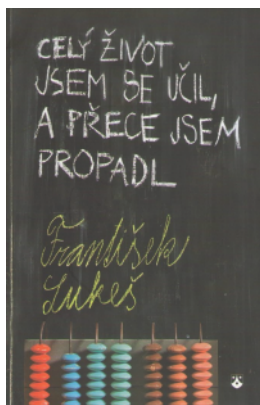 CELÝ ŽIVOT
JSEM SE UČIL,
A PŘECE JSEM
PROPADL
František
Lukeš